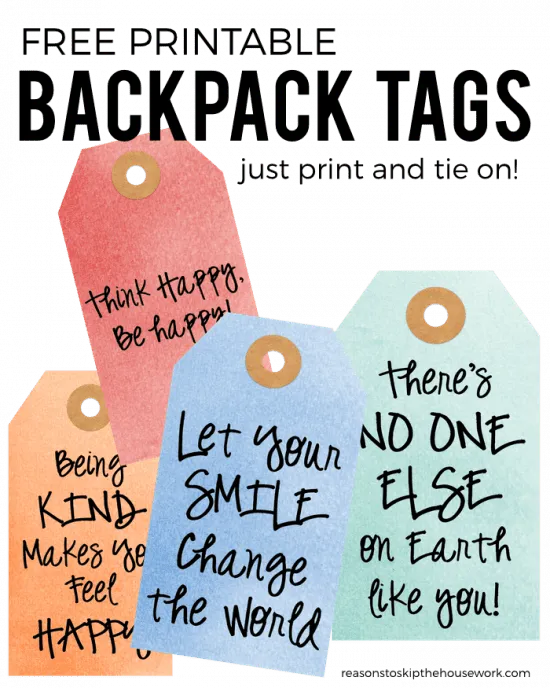 FREE PRINTABLE
BACKPACK TAGS
just print and tie on!
Think Happy,
Be happy!
There's
NO ONE
ELSE
on Earth
like you!
Let your
SMILE
Change
the World
Being
KIND
Makes Yo
Feel
HAPPY
reasonstoskipthehousework.com